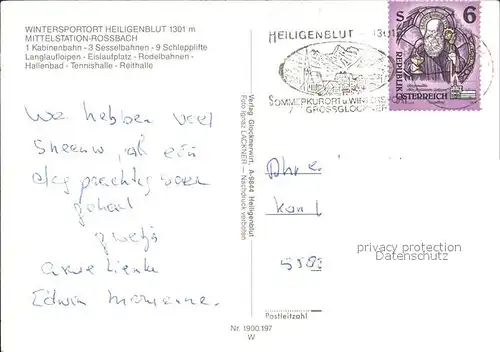 WINTERSPORTORT HEILIGENBLUT 1301 m
MITTELSTATION-ROSSBACH
1 Kabinenbahn - 3 Sesselbahnen - 9 Schlepplifte
Langlaufloipen - Eislaufplatz - Rodelbahnen -
Hallenbad - Tennishalle - Reithalle
We hebben veel
sneeuw, al een
dag prachtig weer
gehad
Edwin Marianne.
Verlag Glocknerwirt, A-9844 Heiligenblut
Foto Ignaz LACKNER — Nachdruck verboten
HEILIGENBLUT 1301
SOMMERKURORT u. WINTERS
GROSSGLOCKNER
S 6
REPUBLIK
ÖSTERREICH
privacy protection
Datenschutz
Postleitzahl
Nr. 1900.197
W